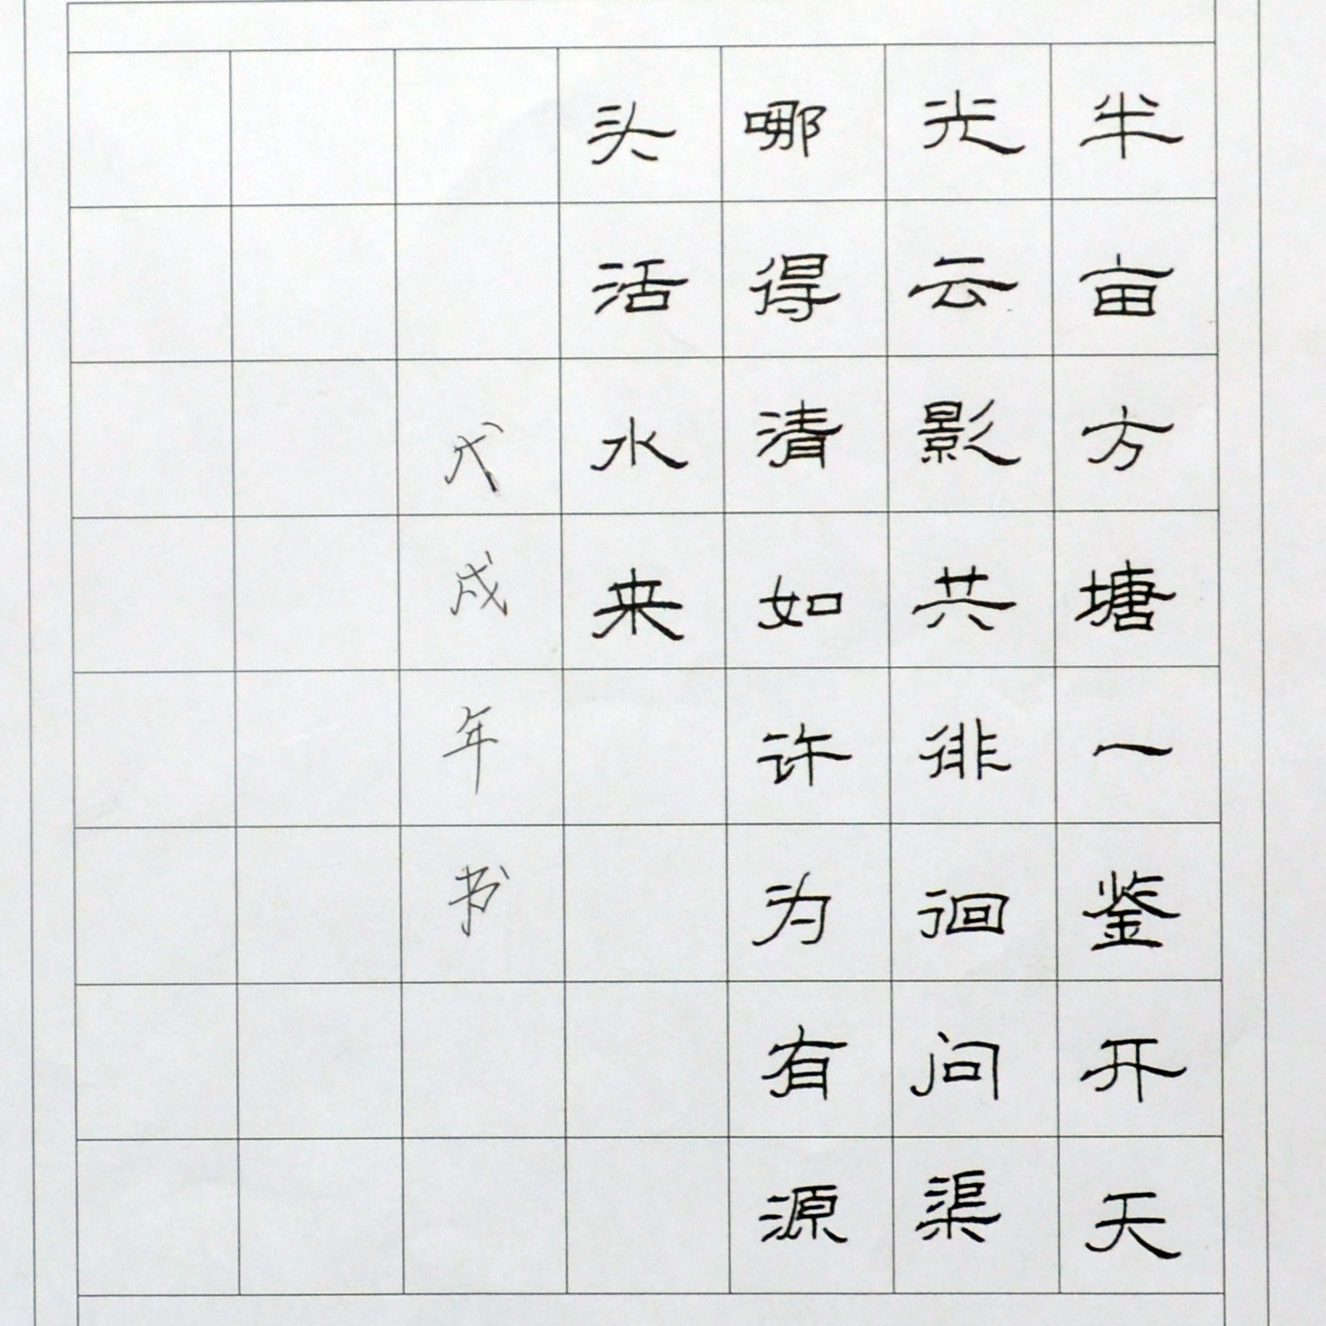 半亩方塘一鉴开天
光云影共徘徊问渠
哪得清如许为有源
头活水来
戊戌年书